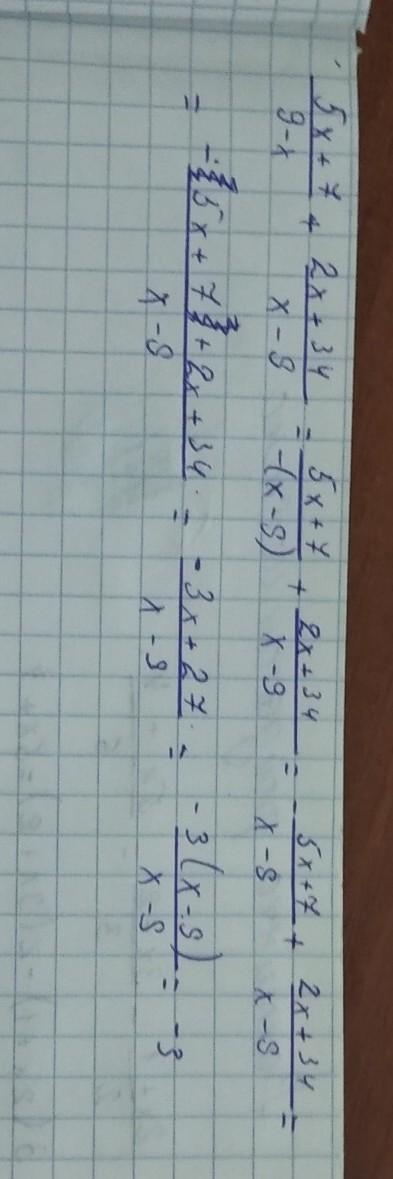 (5x+7)/(9-x) + (2x+34)/(x-9) = (5x+7)/(-(x-9)) + (2x+34)/(x-9) = - (5x+7)/(x-9) + (2x+34)/(x-9) =
= (-(5x+7)+2x+34)/(x-9) = (-3x+27)/(x-9) = (-3(x-9))/(x-9) = -3